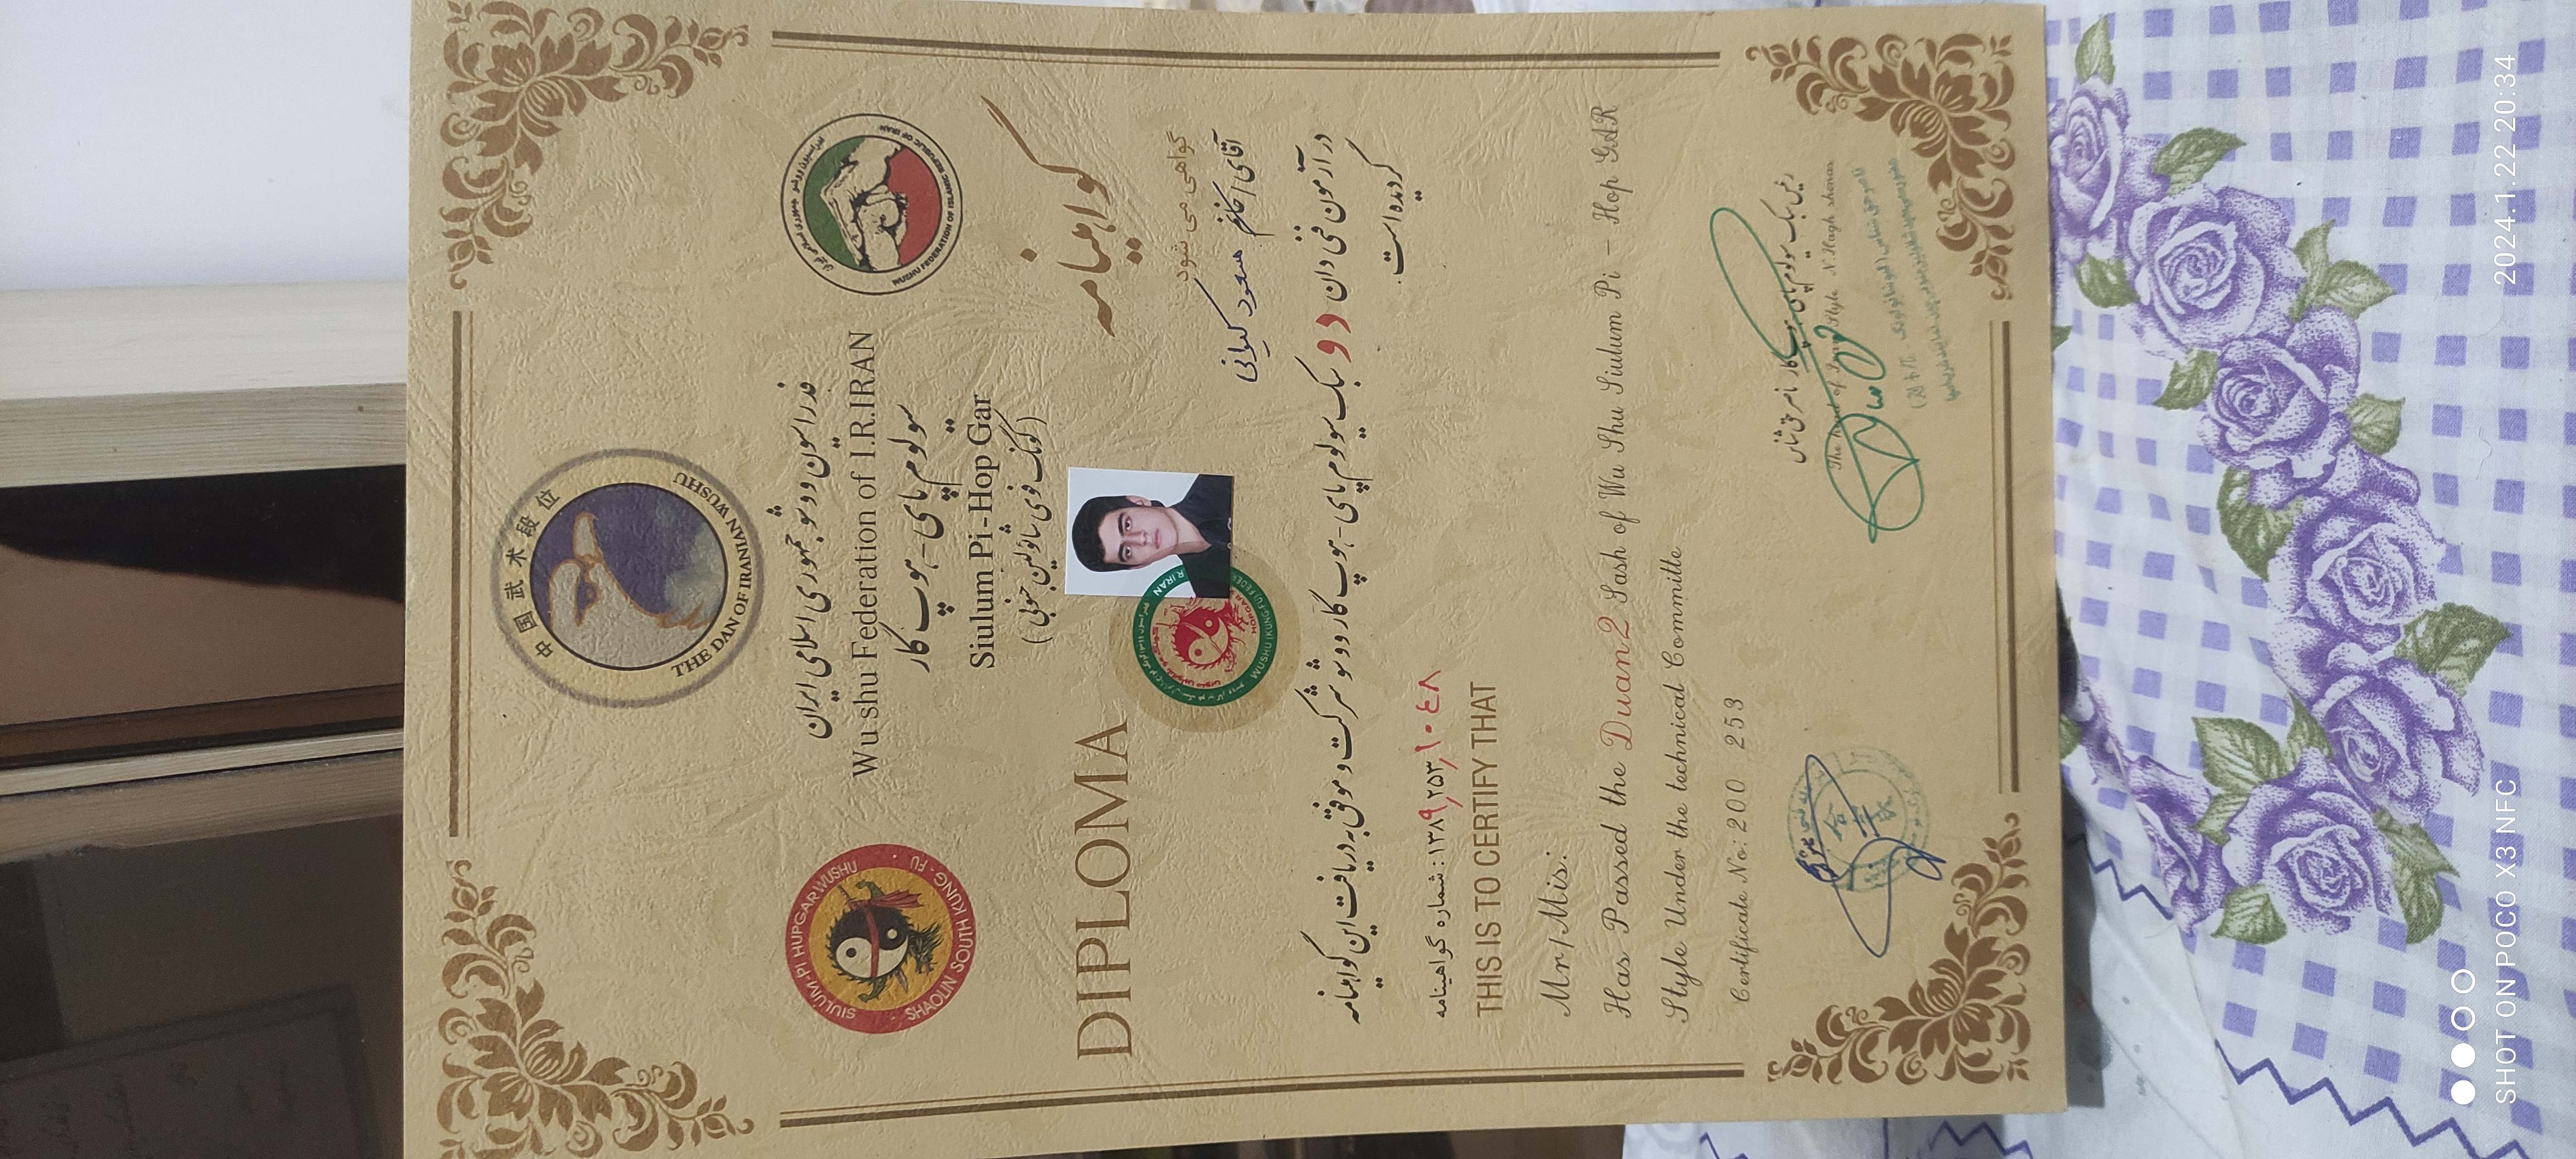 中国武术段位
THE DAN OF IRANIAN WUSHU
فدراسیون ووشو جمهوری اسلامی ایران
Wu shu Federation of I.R.IRAN
سیولوم پای - هوپ گار
Siulum Pi - Hop Gar
(کونگ فوی شائولین جنوبی)
SIULUM-PI HUPGAR WUSHU
SHAOLIN SOUTH KUNG-FU
فدراسیون ووشو جمهوری اسلامی ایران
WUSHU FEDERATION OF ISLAMIC REPUBLIC OF IRAN
DIPLOMA
گواهینامه
گواهی می شود
آقای/خانم مسعود کیوانی
در آزمون فنی دان دو سبک سیولوم پای - هوپ گار ووشو شرکت و موفق به دریافت این گواهینامه
گردیده است.
شماره گواهینامه: ۱۳۸۹,۲۵۳,۱۰۴۸
THIS IS TO CERTIFY THAT
Mr/Mis:
Has Passed the Duan 2 Sash of Wu Shu Siulum Pi - Hop GAR
Style Under the technical Committe
Certificate No: 200 253
رئیس سبک سیولوم پای هوپ گار ناصر حق شناس
The Head of Style N.Hagh shenas
SHOT ON POCO X3 NFC
2024.1.22 20:34